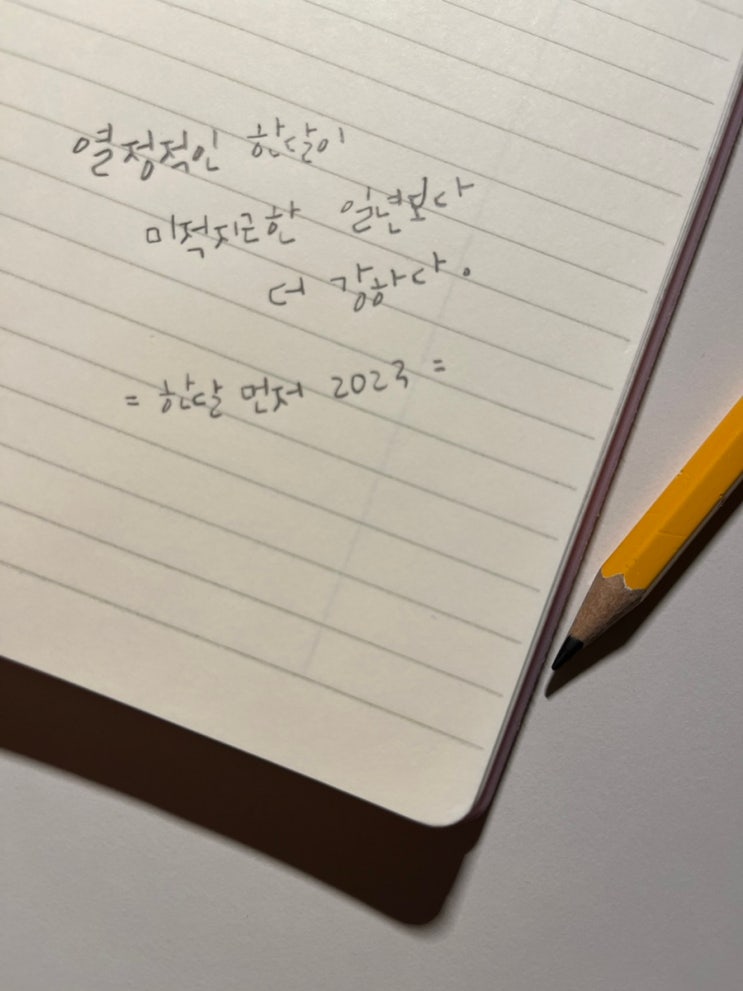 열정적인 한달이
미적지근한 일년보다
더 강하다.
= 한달 먼저 2023 =